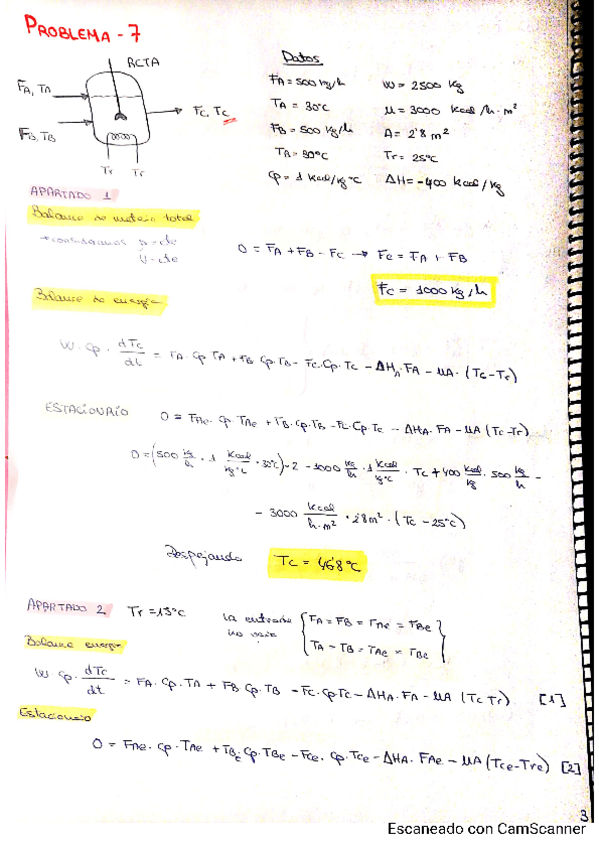 PROBLEMA - 7
RCTA
FA, TA
FB, TB
FC, TC
Tr Tr
Datos
FA = 500 kg/h W = 2500 kg
TA = 30°C U = 3000 kcal/h·m²
FB = 500 kg/h A = 2'8 m²
TB = 30°C Tr = 25°C
Cp = 1 kcal/kg°C ΔH = -400 kcal/kg
APARTADO 1
Balance de materia total
* consideramos ρ = cte
V = cte
0 = FA + FB - FC → FC = FA + FB
FC = 1000 kg/h
Balance de energía
W · Cp · dTc/dt = FA · Cp TA + FB Cp TB - FC · Cp · TC - ΔHA · FA - UA · (TC - Tr)
ESTACIONARIO 0 = FAe · Cp · TAe + FB · Cp · TB - FC · Cp TC - ΔHA · FA - UA (TC - Tr)
0 = (500 kg/h · 1 kcal/kg°C · 30°C) · 2 - 1000 kg/h · 1 kcal/kg°C · TC + 400 kcal/kg · 500 kg/h -
- 3000 kcal/h·m² · 2'8 m² · (TC - 25°C)
Despejando TC = 46'8°C
APARTADO 2 Tr = 13°C
la entrada no varía { FA = FB = FAe = FBe
TA = TB = TAe = TBe }
Balance energía
W · Cp · dTc/dt = FA · Cp · TA + FB Cp · TB - FC · Cp TC - ΔHA · FA - UA (TC Tr) [1]
Estacionario
0 = FAe · Cp · TAe + FBe · Cp · TBe - FCe · Cp · TCe - ΔHA · FAe - UA (TCe - Tre) [2]
3
Escaneado con CamScanner